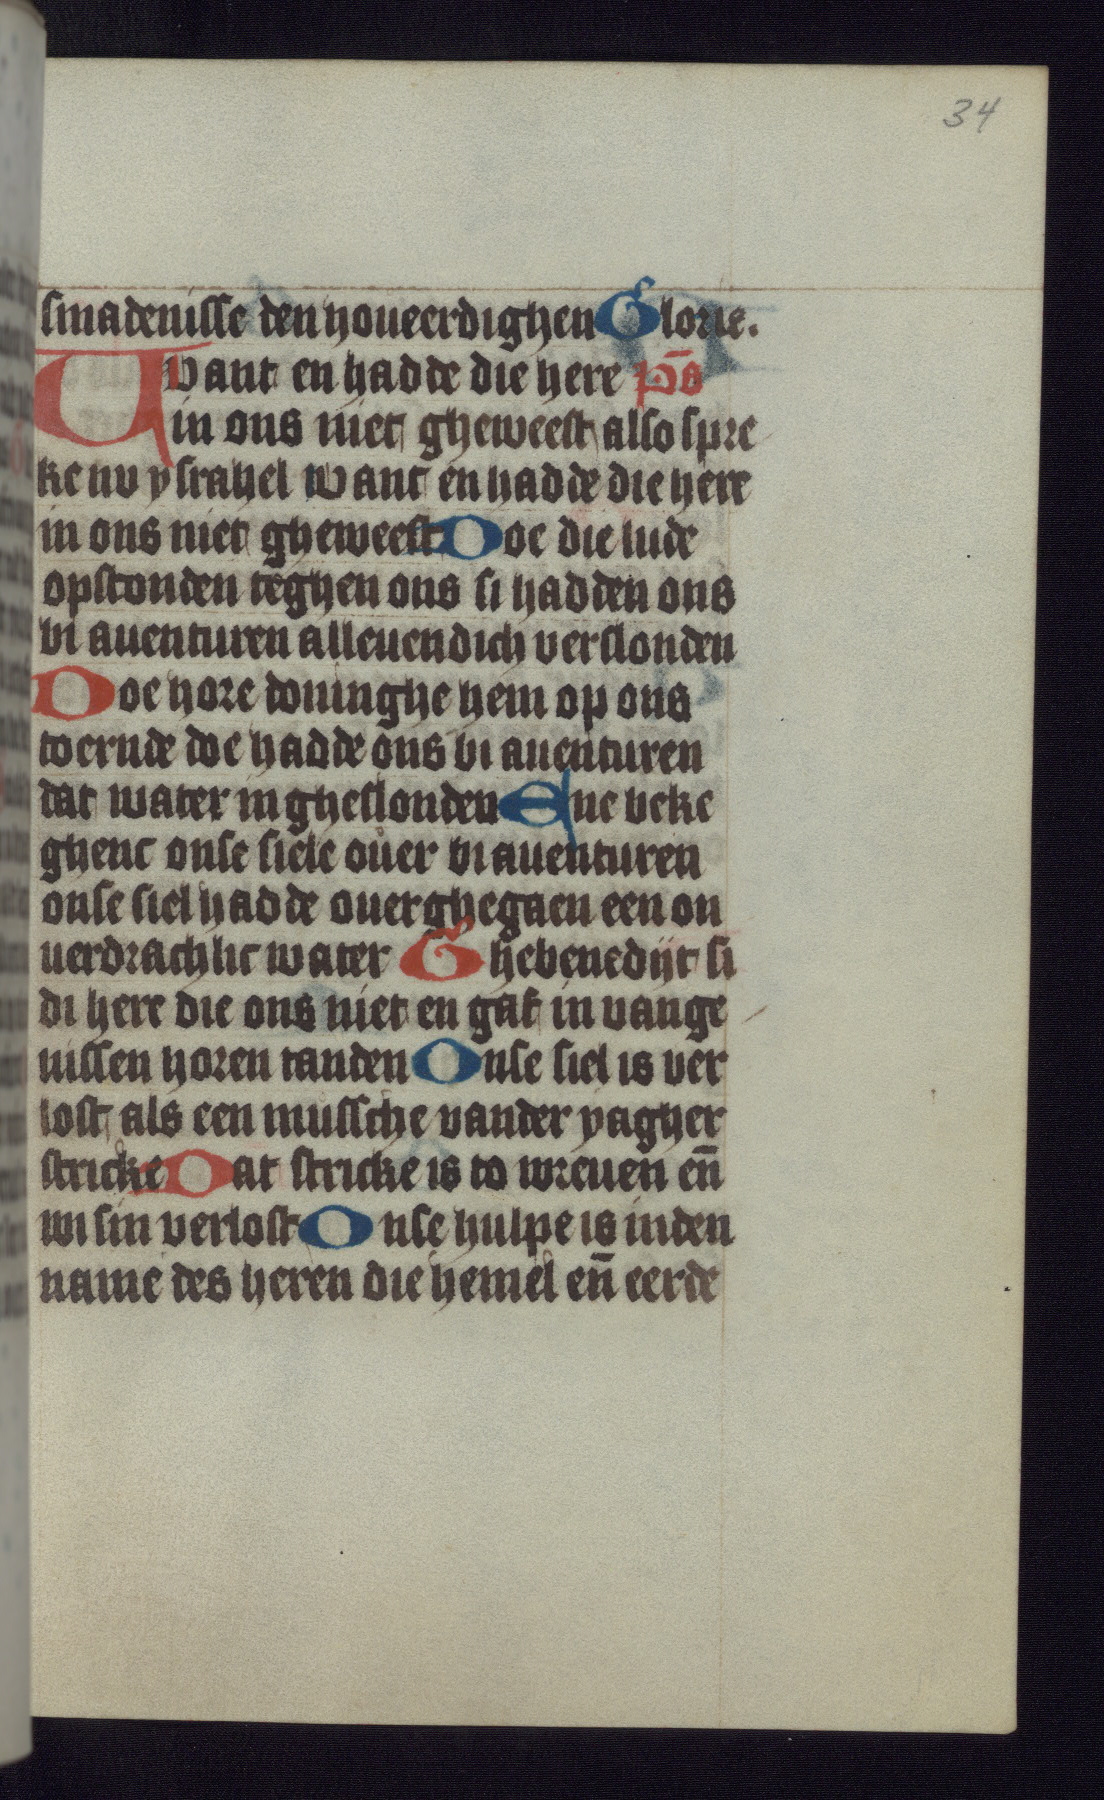 34
smadenisse den houeerdighen Glorie.
Want en hadde die here ps̄
in ons niet gheweest also spre
ke nv ysrahel want en hadde die here
in ons niet gheweest Doe die lude
opstonden teghen ons si hadden ons
bi auenturen alleuendich verslonden
Doe hore toninghe hem op ons
toernde doe hadde ons bi auenturen
dat water in gheslonden Ene beke
ghenc onse siele ouer bi auenturen
onse siel hadde ouerghegaen een on
uerdrachlic water Ghebenedijt si
di here die ons niet en gaf in vange
nissen horen tanden Onse siel is ver
lost als een mussche vander yagher
stricke Dat stricke is to wreuen en̄
wi sin verlost Onse hulpe is inden
name des heren die hemel en̄ eerde